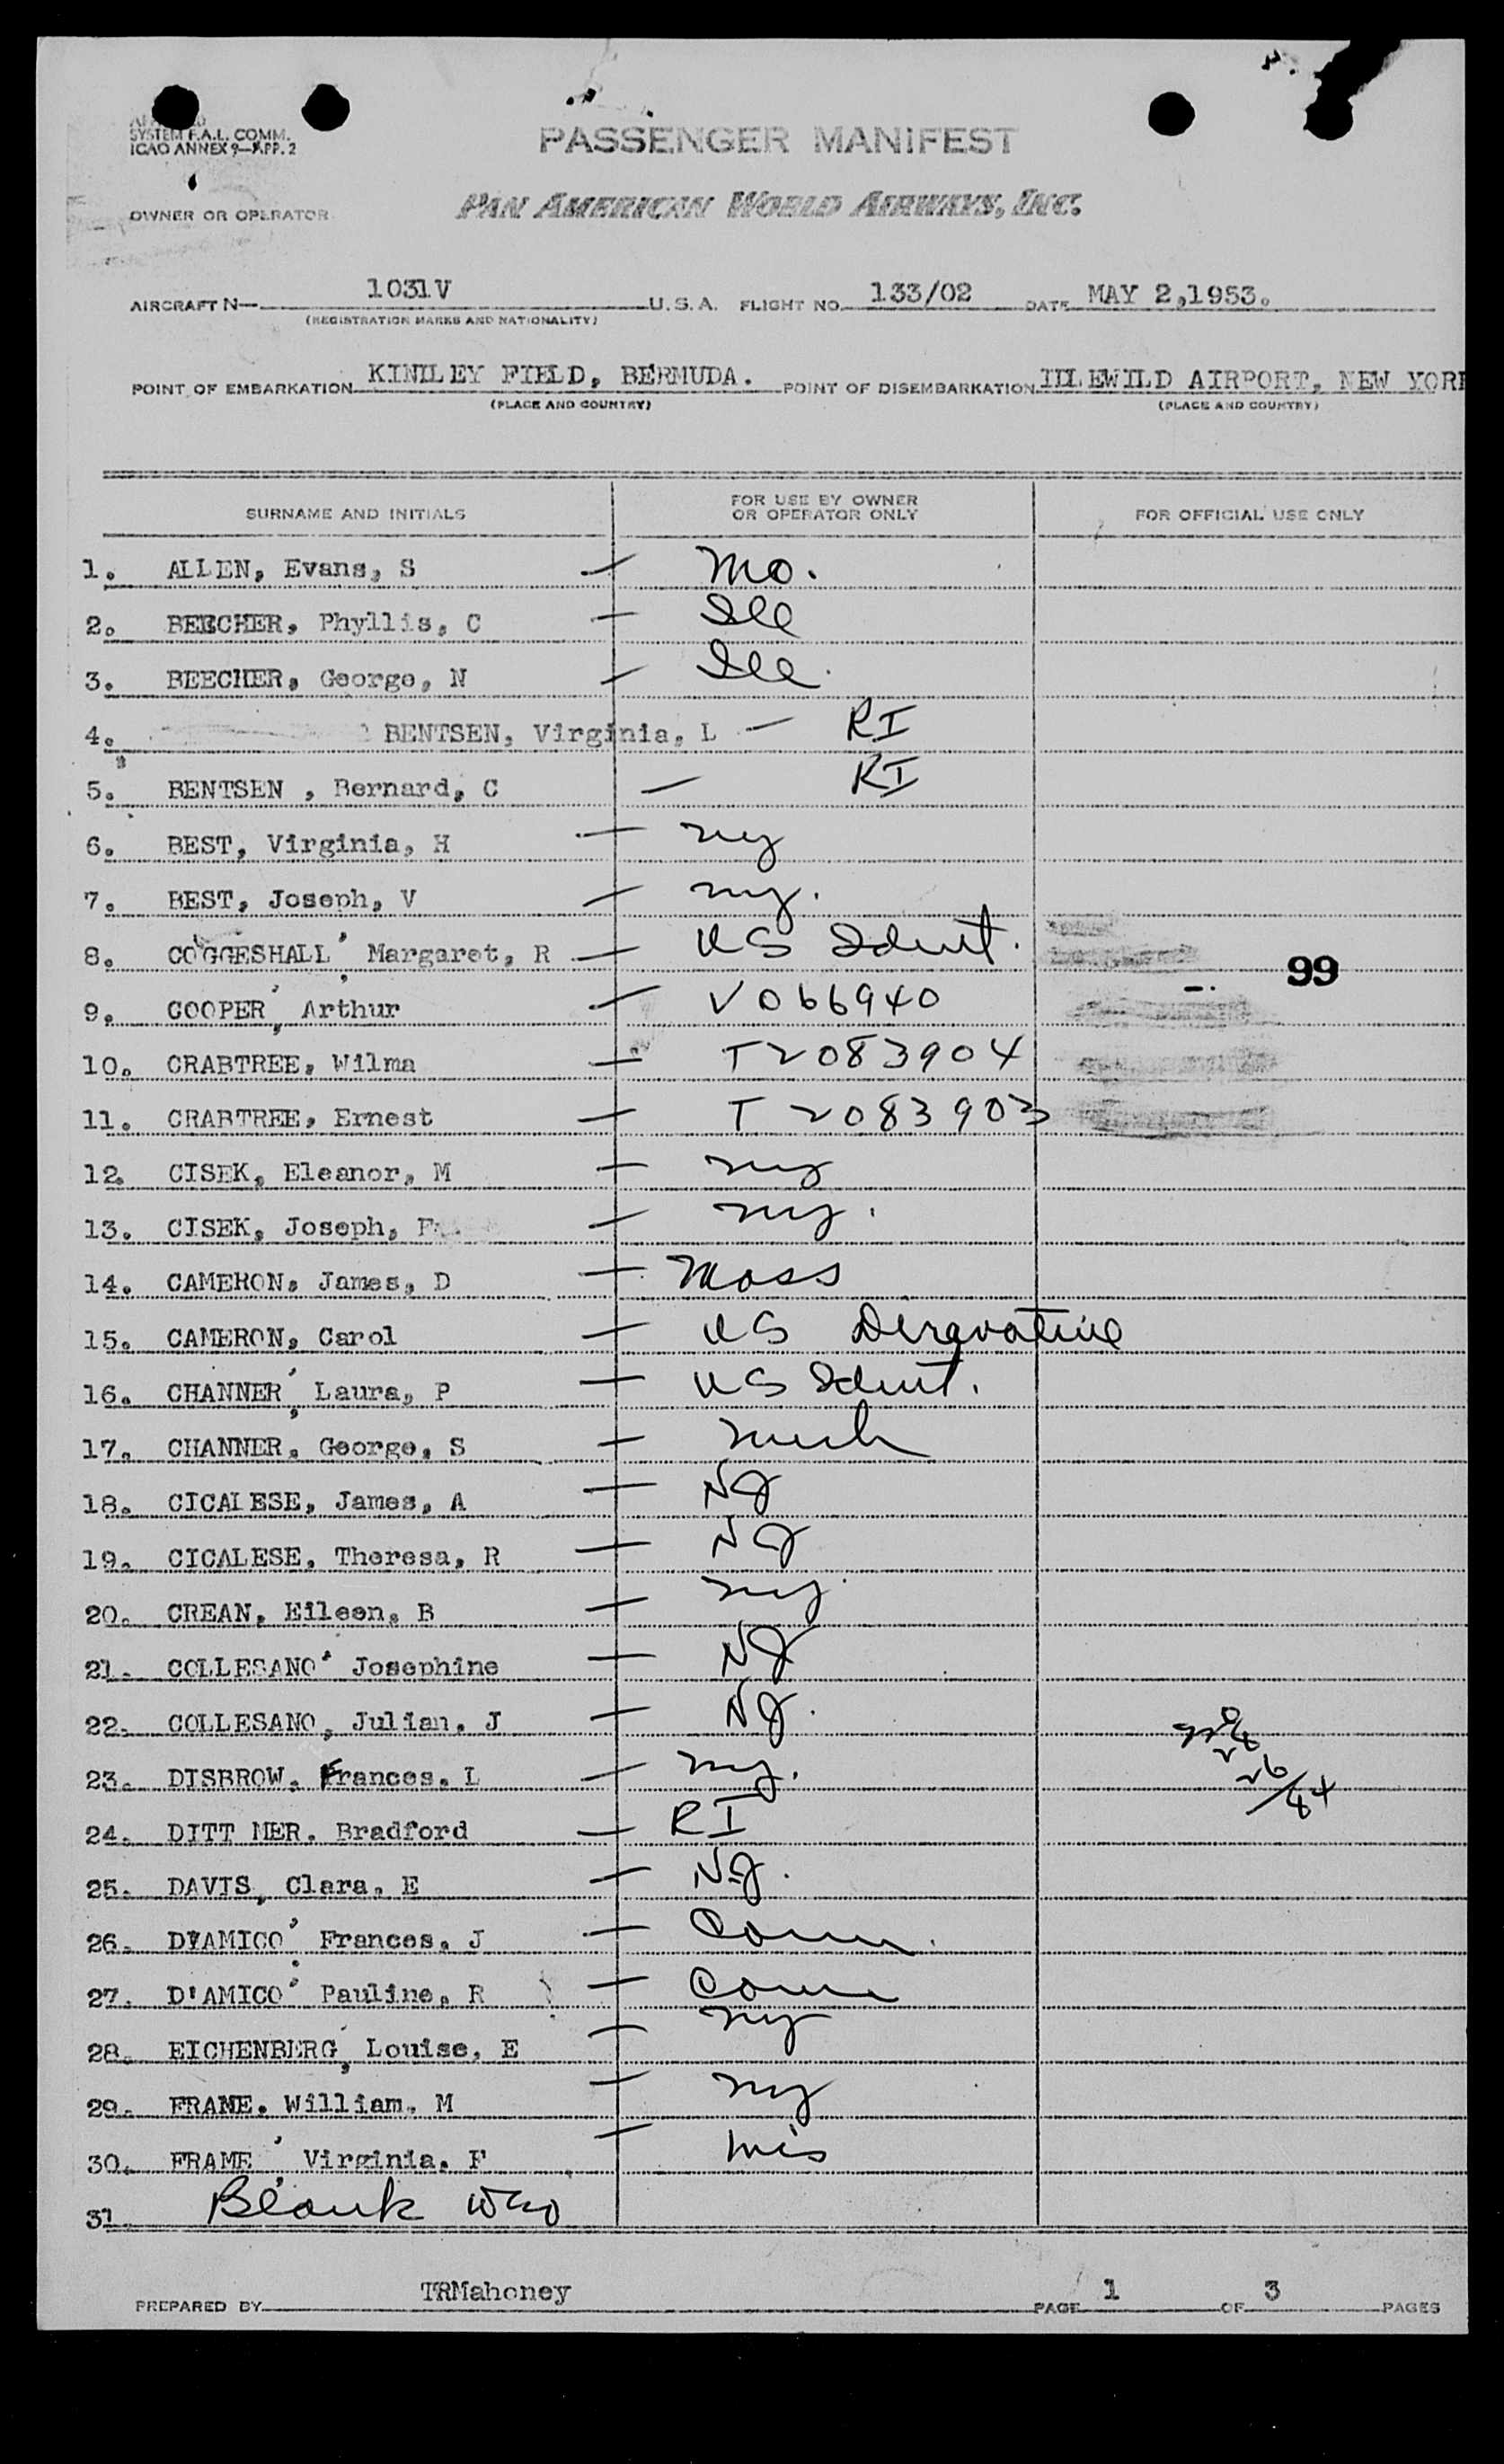 SYSTEM F.A.L. COMM.
ICAO ANNEX 9—APP. 2
PASSENGER MANIFEST
OWNER OR OPERATOR
PAN AMERICAN WORLD AIRWAYS, INC.
AIRCRAFT N— 1031V U.S.A. FLIGHT NO. 133/02 DATE MAY 2,1953.
(REGISTRATION MARKS AND NATIONALITY)
POINT OF EMBARKATION KINDLEY FIELD, BERMUDA. POINT OF DISEMBARKATION IDLEWILD AIRPORT, NEW YORK
(PLACE AND COUNTRY) (PLACE AND COUNTRY)
SURNAME AND INITIALS FOR USE BY OWNER OR OPERATOR ONLY FOR OFFICIAL USE ONLY
1. ALLEN, Evans, S — Mo.
2. BEECHER, Phyllis, C — Ill
3. BEECHER, George, N — Ill.
4. BENTSEN, Virginia, L — RI
5. BENTSEN , Bernard, C — RI
6. BEST, Virginia, H — ny
7. BEST, Joseph, V — ny.
8. COGGESHALL, Margaret, R — US Ident.
99
9. COOPER, Arthur — V066940
10. CRABTREE, Wilma — T2083904
11. CRABTREE, Ernest — T2083903
12. CISEK, Eleanor, M — ny
13. CISEK, Joseph, F — ny.
14. CAMERON, James, D — Mass
15. CAMERON, Carol — US Deravative
16. CHANNER, Laura, P — US Ident.
17. CHANNER, George, S — Mich
18. CICALESE, James, A — NJ
19. CICALESE, Theresa, R — NJ
20. CREAN, Eileen, B — ny
21. COLLESANO' Josephine — NJ
22. COLLESANO, Julian, J — NJ.
23. DISBROW, Frances, L — ny.
26/84
24. DITT MER, Bradford — RI
25. DAVIS, Clara, E — NJ.
26. D'AMICO' Frances, J — Conn.
27. D'AMICO' Pauline, R — Conn
28. EICHENBERG, Louise, E — ny
29. FRAME, William, M — ny
30. FRAME, Virginia, F — Wis
31. Blank
PREPARED BY TRMahoney PAGE 1 OF 3 PAGES